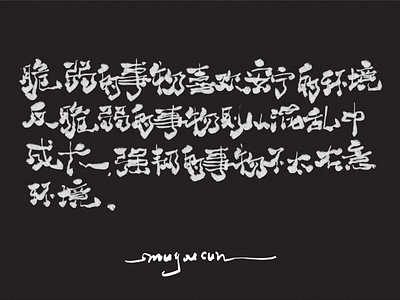 脆弱的事物喜欢安宁的环境
反脆弱的事物则从混乱中
成长,强韧的事物不太在意
环境。